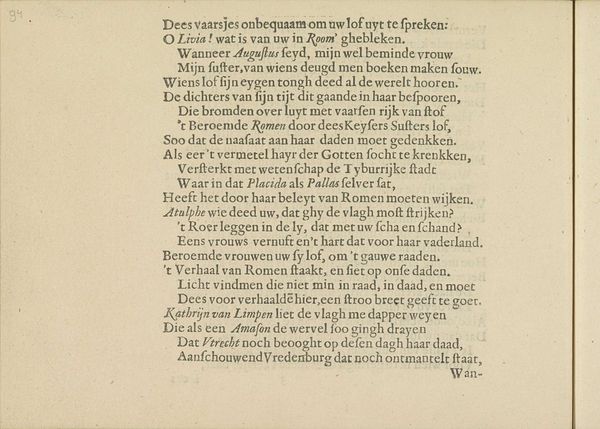 94
Dees vaarsjes onbequaam om uw lof uyt te ſpreken:
O Livia! wat is van uw in Room' ghebleken.
Wanneer Auguſtus ſeyd, mijn wel beminde vrouw
Mijn ſuſter, van wiens deugd men boeken maken ſouw.
Wiens lof ſijn eygen tongh deed al de werelt hooren.
De dichters van ſijn tijt dit gaande in haar beſpooren,
Die bromden over luyt met vaarſen rijk van ſtof
't Beroemde Romen door dees Keyſers Suſters lof,
Soo dat de naaſaat aan haar daden moet gedenkken.
Als eer 't vermetel hayr der Gotten ſocht te krenkken,
Verſterkt met wetenſchap de Tyburrijke ſtadt
Waar in dat Placida als Pallas ſelver ſat,
Heeft het door haar beleyt van Romen moeten wijken.
Atulphe wie deed uw, dat ghy de vlagh moſt ſtrijken?
't Roer leggen in de ly, dat met uw ſcha en ſchand?
Eens vrouws vernuft en't hart dat voor haar vaderland.
Beroemde vrouwen uw ſy lof, om 't gauwe raaden.
't Verhaal van Romen ſtaakt, en ſiet op onſe daden.
Licht vindmen die niet min in raad, in daad, en moet
Dees voor verhaaldẽ hier, een ſtroo breet geeft te goet.
Kathrijn van Limpen liet de vlagh me dapper weyen
Die als een Amaſon de wervel ſoo gingh drayen
Dat Vtrecht noch beooght op deſen dagh haar daad,
Aanſchouwend Vredenburg dat noch ontmantelt ſtaat,
Wan-